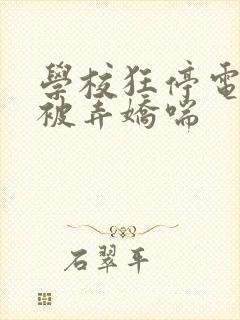 學校狂停電
被弄嬌喘
石翠平